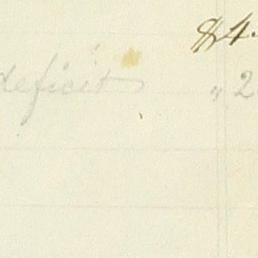 $4.
deficit " 2